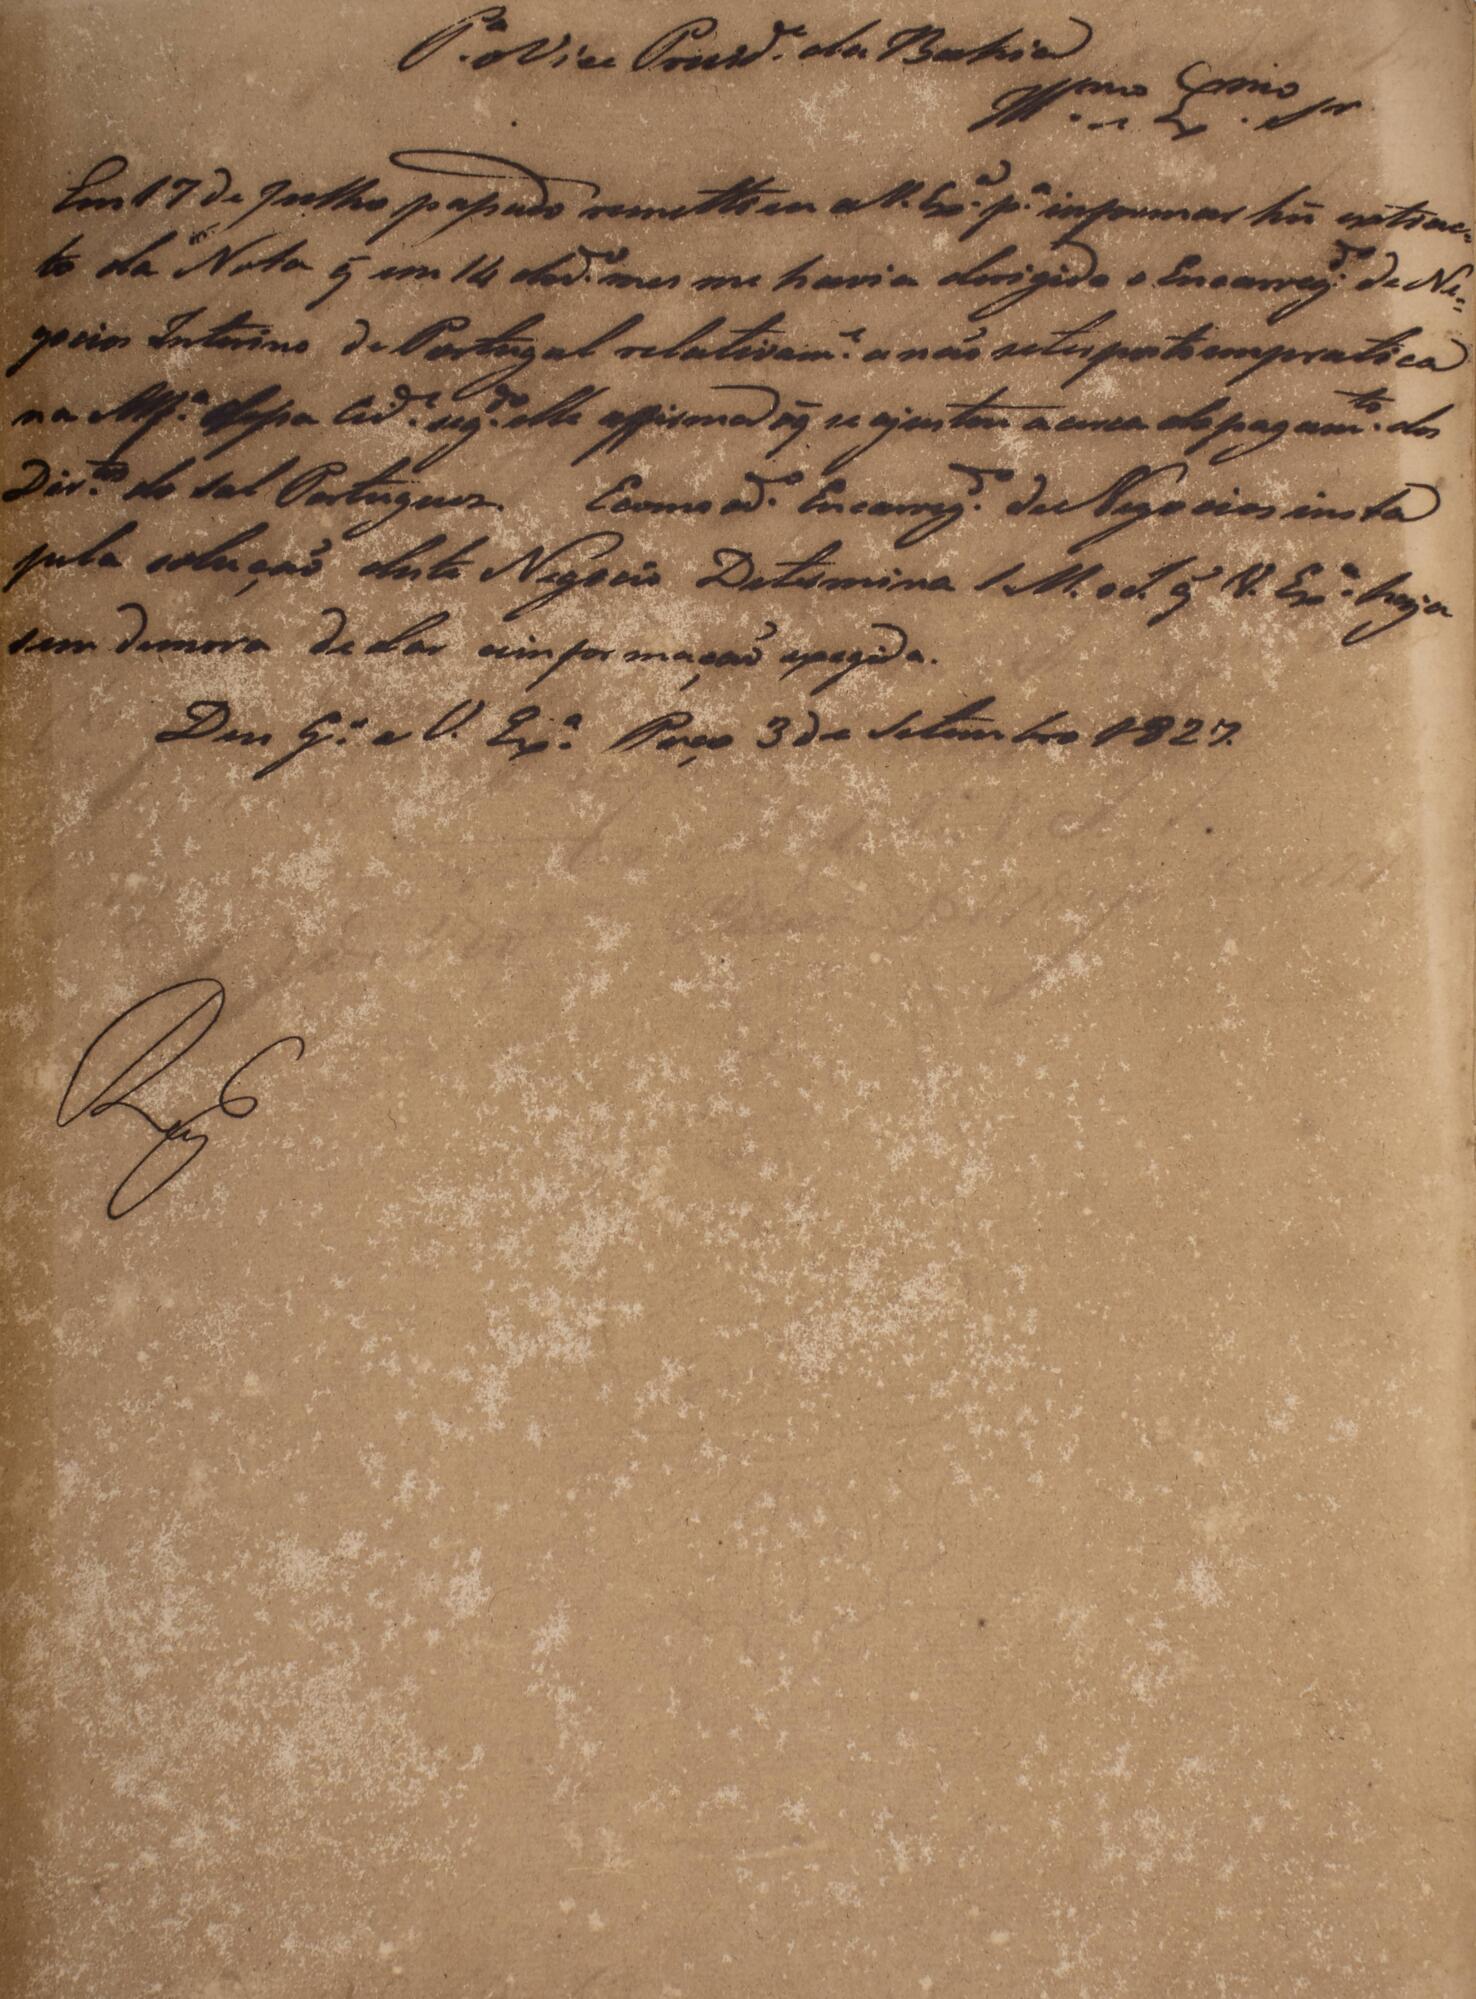 P.ª o Vice Presid.e da Bahia
Ill.mo e Ex.mo Sr
Em 17 de Julho passado remetti eu a V. Ex.ª p.ª informar hũ extrac-
to da Nota q̃ em 14 do d.o mes me havia dirigido o Encarreg.do de Ne-
gocios Interino de Portugal relativam.e a não se ter posto em pratica
na Alf.ª dessa Cid.e seg.do elle affirma o q̃ se ajustou acerca do pagam.to dos
Dir.tos do sal Portuguez. E como o d.o Encarreg.do de Negocios insta
pela solução deste Negocio Determina S. M. o I. q̃ V. Ex.ª haja
sem demora de dar a informação exegida.
Deus G.e a V. Ex.ª Paço 3 de Setembro 1827.